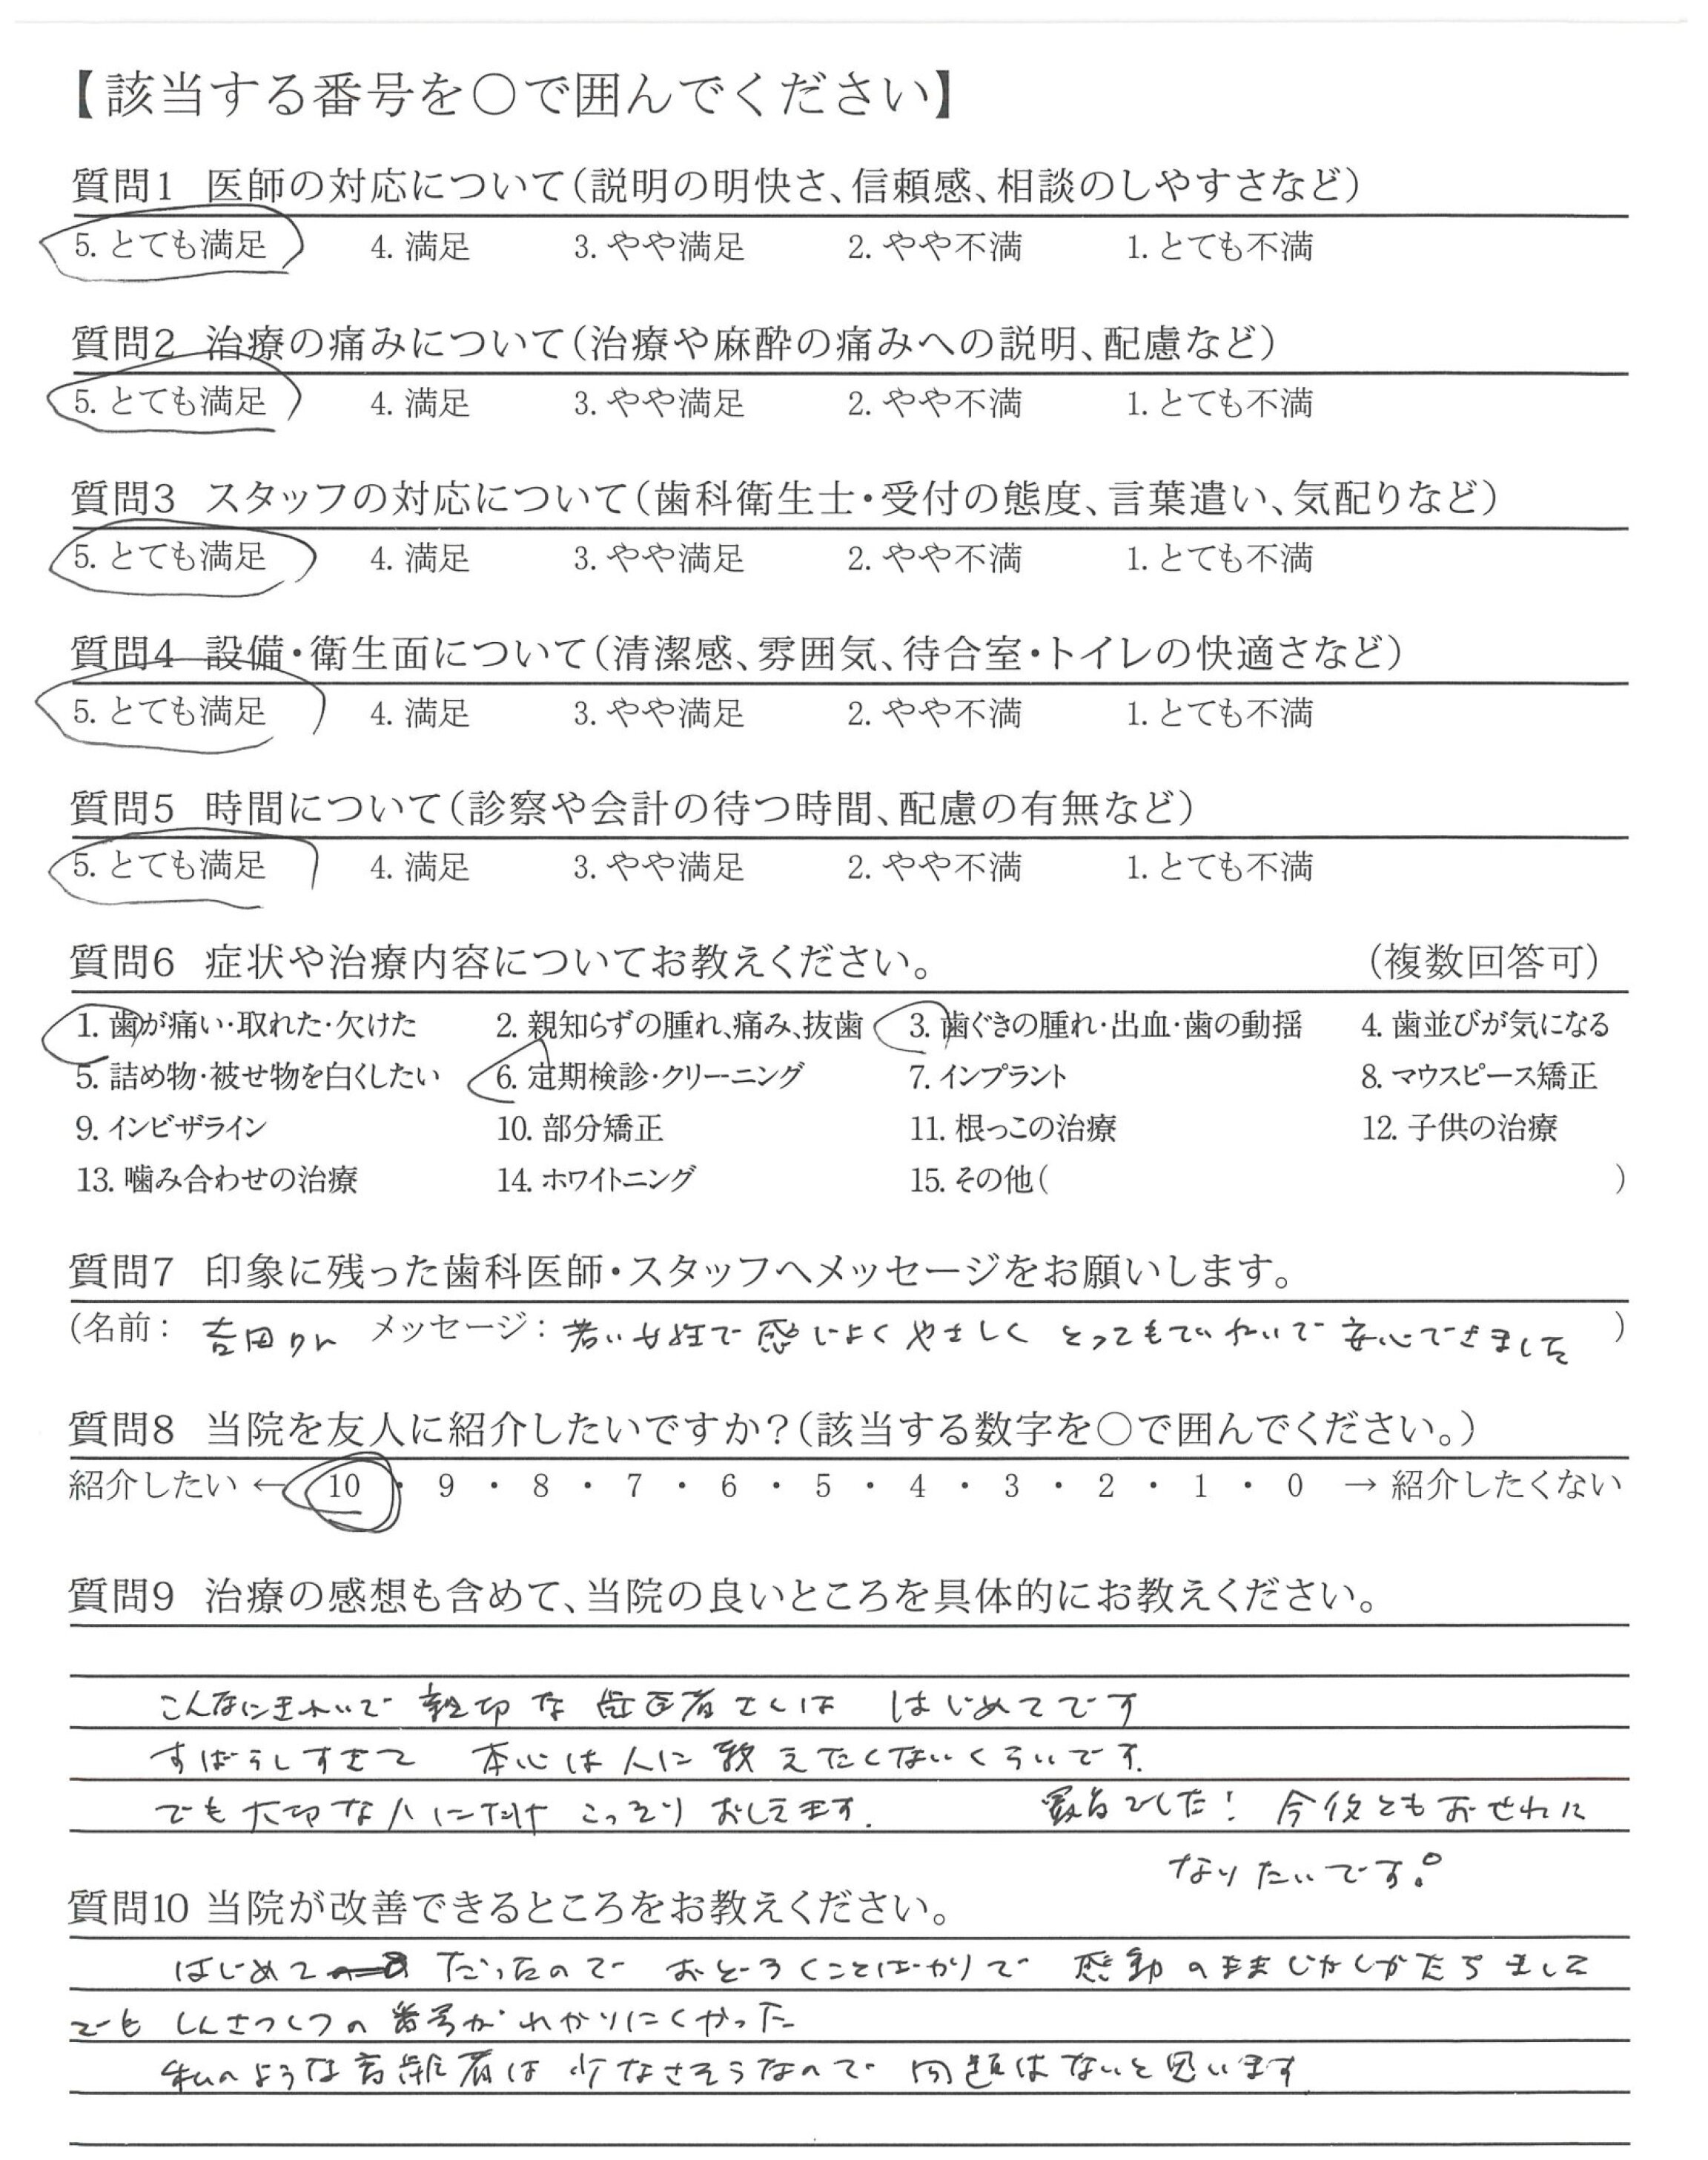 【該当する番号を○で囲んでください】
質問1 医師の対応について(説明の明快さ、信頼感、相談のしやすさなど)
5. とても満足 4. 満足 3. やや満足 2. やや不満 1. とても不満
質問2 治療の痛みについて(治療や麻酔の痛みへの説明、配慮など)
5. とても満足 4. 満足 3. やや満足 2. やや不満 1. とても不満
質問3 スタッフの対応について(歯科衛生士・受付の態度、言葉遣い、気配りなど)
5. とても満足 4. 満足 3. やや満足 2. やや不満 1. とても不満
質問4 設備・衛生面について(清潔感、雰囲気、待合室・トイレの快適さなど)
5. とても満足 4. 満足 3. やや満足 2. やや不満 1. とても不満
質問5 時間について(診察や会計の待つ時間、配慮の有無など)
5. とても満足 4. 満足 3. やや満足 2. やや不満 1. とても不満
質問6 症状や治療内容についてお教えください。 (複数回答可)
1. 歯が痛い・取れた・欠けた 2. 親知らずの腫れ、痛み、抜歯 3. 歯ぐきの腫れ・出血・歯の動揺 4. 歯並びが気になる
5. 詰め物・被せ物を白くしたい 6. 定期検診・クリーニング 7. インプラント 8. マウスピース矯正
9. インビザライン 10. 部分矯正 11. 根っこの治療 12. 子供の治療
13. 噛み合わせの治療 14. ホワイトニング 15. その他( )
質問7 印象に残った歯科医師・スタッフへメッセージをお願いします。
(名前: 吉田りん メッセージ: 若い女性で 感じよく やさしく とってもていねいで 安心できました )
質問8 当院を友人に紹介したいですか?(該当する数字を○で囲んでください。)
紹介したい ← 10 ・ 9 ・ 8 ・ 7 ・ 6 ・ 5 ・ 4 ・ 3 ・ 2 ・ 1 ・ 0 → 紹介したくない
質問9 治療の感想も含めて、当院の良いところを具体的にお教えください。
こんなにきれいで 親切な 歯医者さんは はじめてです
すばらしすぎて 本心は人に 教えたくないくらいです.
でも大切な人にだけ こっそり おしえます. 最高でした! 今後ともおせわに
なりたいです。
質問10 当院が改善できるところをお教えください。
はじめて だったので おどろくことばかりで 感動のまま じかんがたちまして
でも しんさつしつの 番号が わかりにくかった
私のような高齢者は 少なさそうなので 問題はないと思います